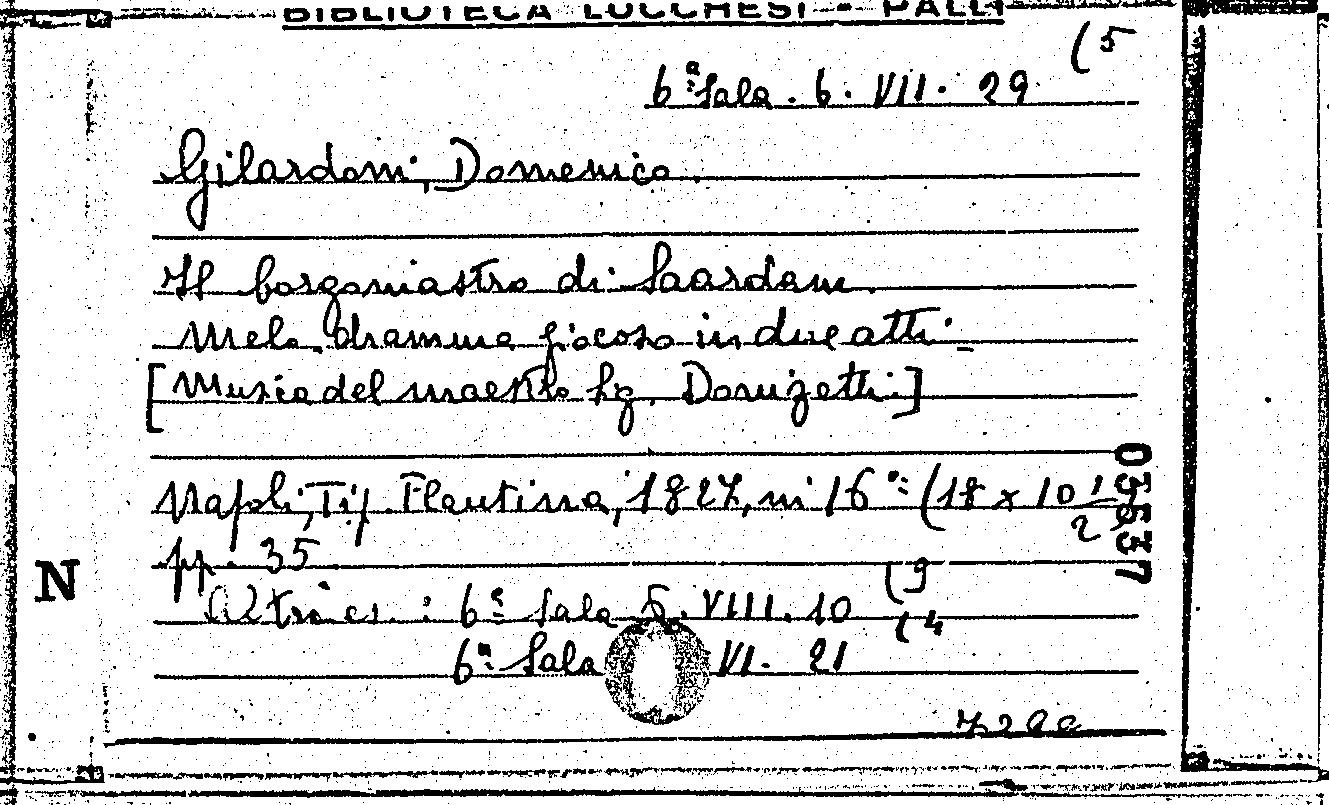 BIBLIOTECA LUCCHESI - PALLI
(5
6ª Sala. 6. VII. 29
Gilardoni, Domenico.
Il borgomastro di Saardam.
Melo.dramma giocoso in due atti.
[Musica del maestro Sig. Donizetti.]
Napoli, Tip. Flautina, 1827, in 16°: (18 x 10 1/2)
pp. 35
03537
N
Altri es.: 6ª Sala 5. VIII. 10 (9
6ª Sala VI. 21 (4